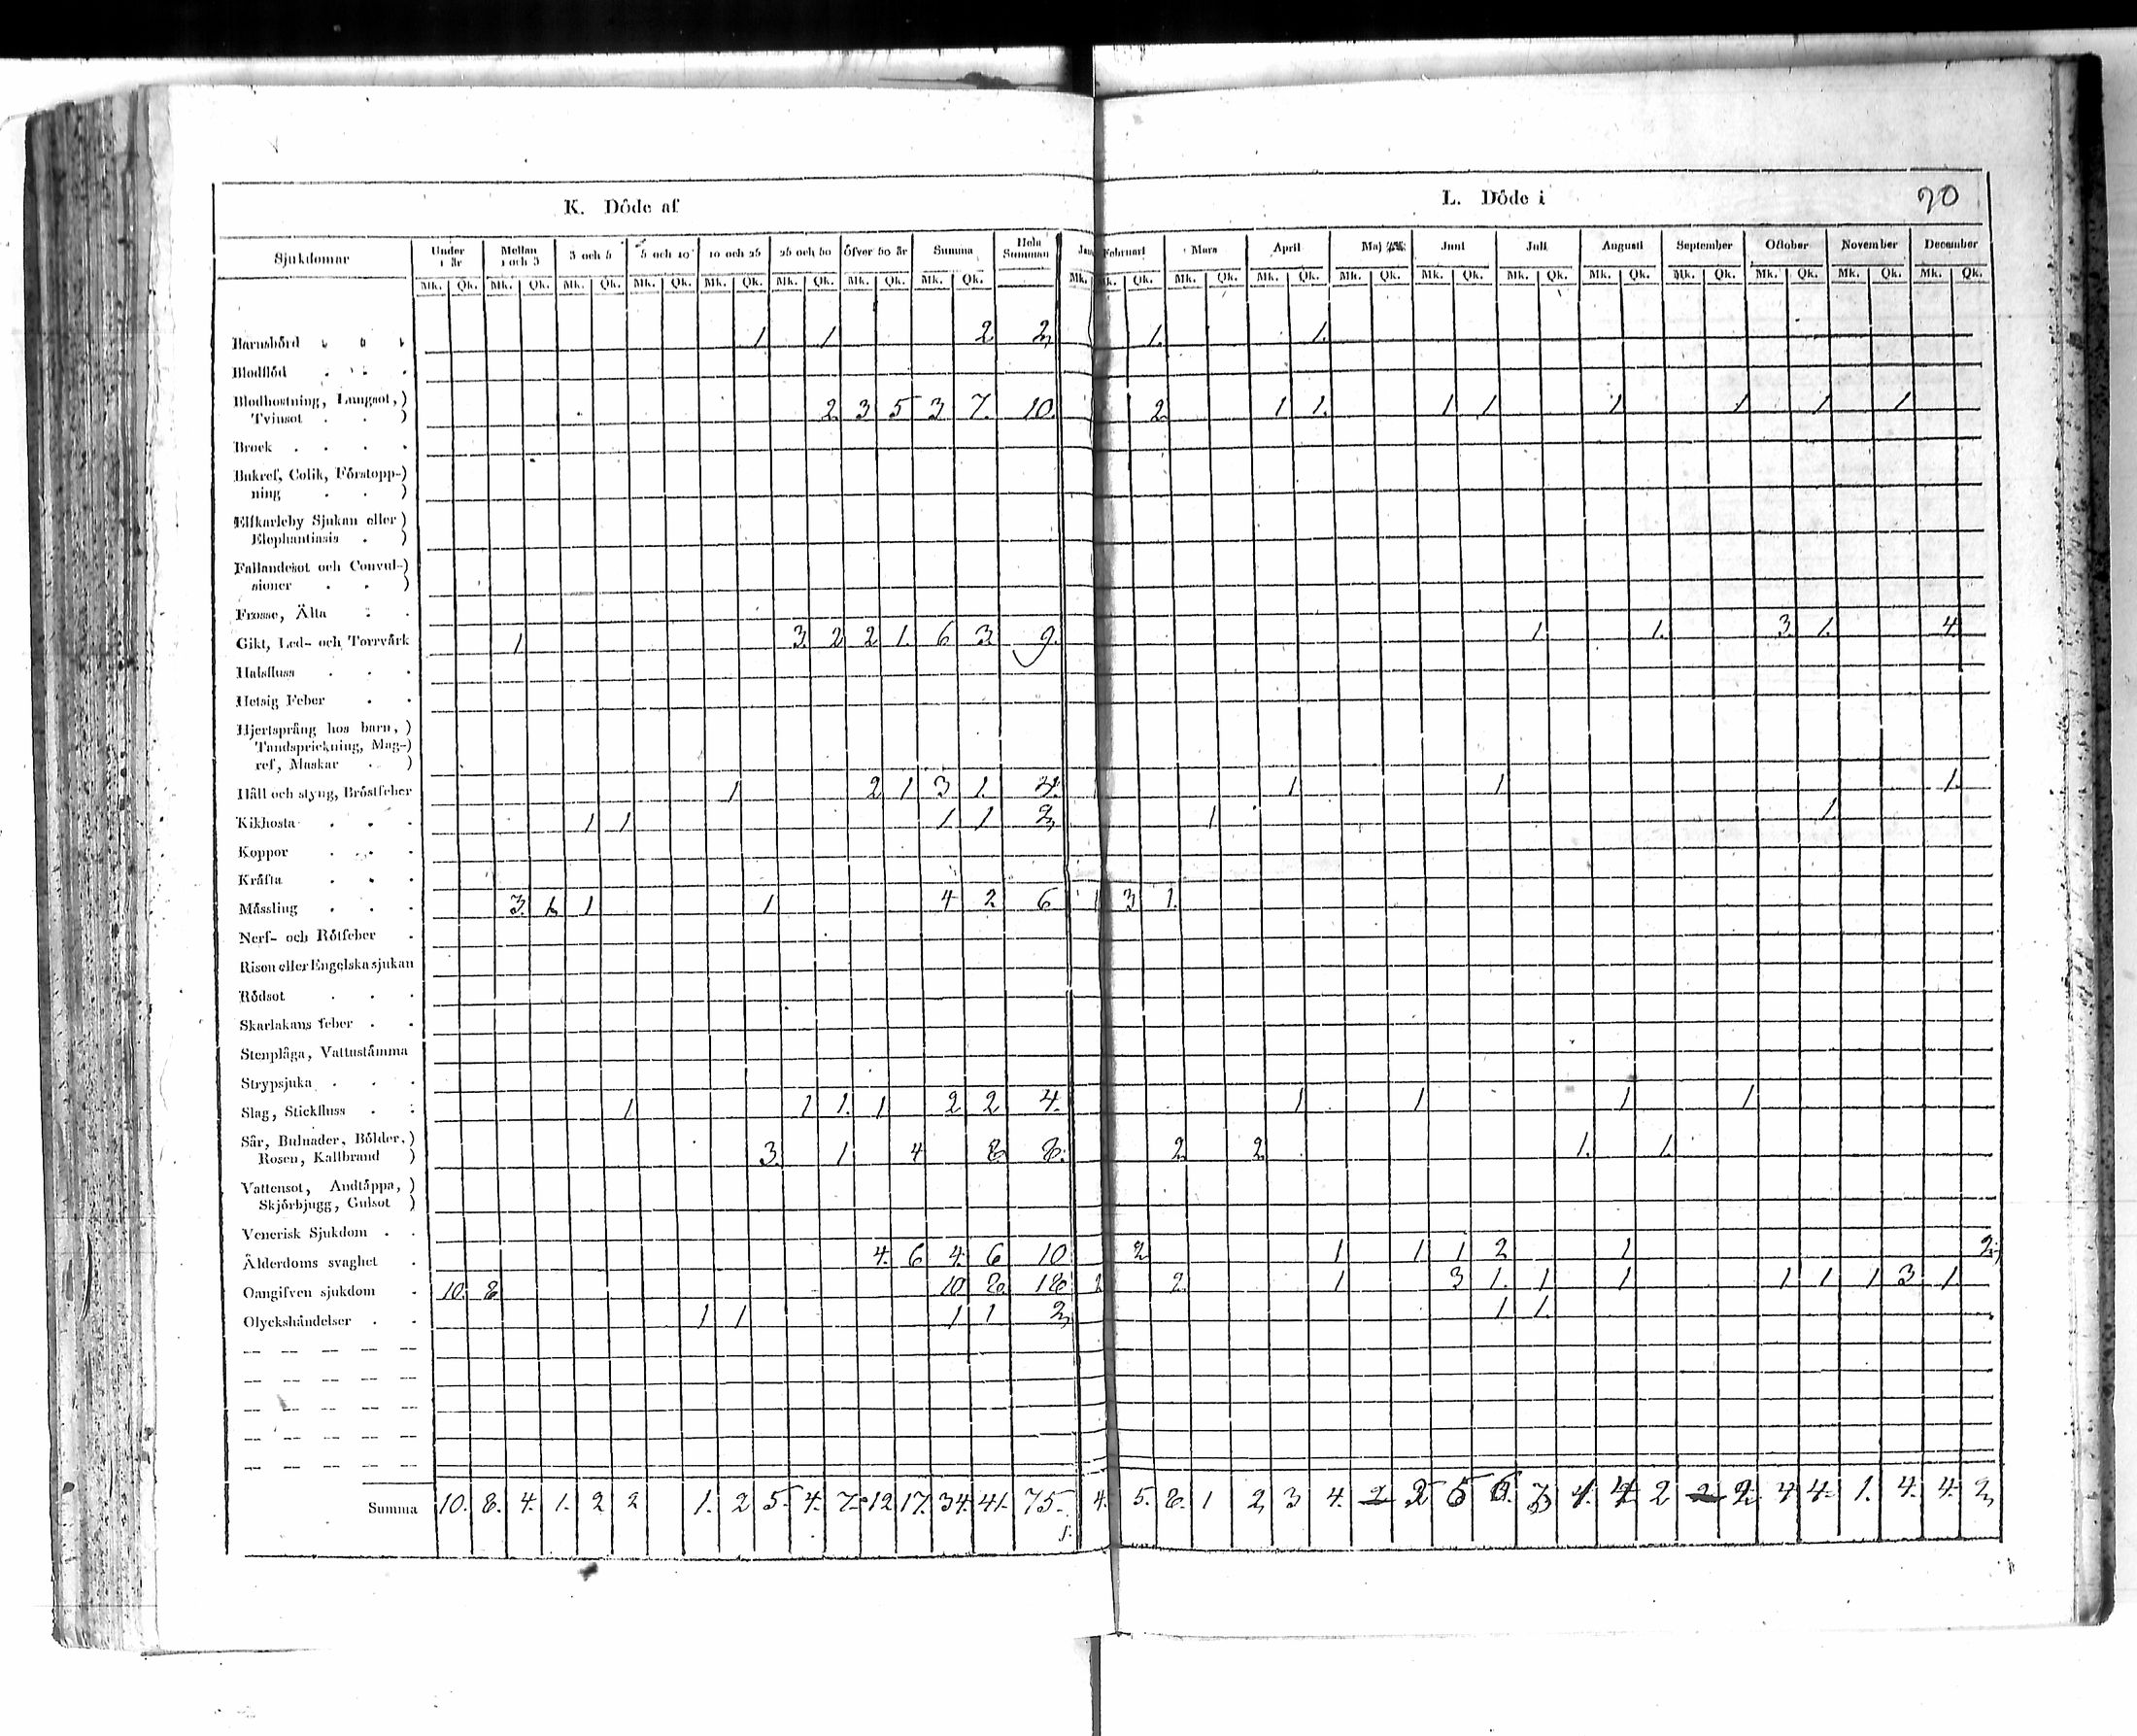 K. Döde af
L. Döde i 70
Sjukdomar Under 1 år Mellan 1 och 3 3 och 5 5 och 10 10 och 25 25 och 50 öfver 50 år Summa Hela Summan Februari Mars April Maj Juni Juli Augusti September Oktober November December
Mk. Qk. Mk. Qk. Mk. Qk. Mk. Qk. Mk. Qk. Mk. Qk. Mk. Qk. Mk. Qk. Mk. Mk. Qk. Mk. Qk. Mk. Qk. Mk. Qk. Mk. Qk. Mk. Qk. Mk. Qk. Mk. Qk. Mk. Qk. Mk. Qk. Mk. Qk.
Barnsbörd 1 1 2 2, 1. 1.
Blodflöd
Blodhostning, Lungsot,)
Tvinsot ) 2 3 5 3 7. 10. 2 1 1. 1 1 1 1 1 1
Brock
Bukref, Colik, Förstopp-)
ning )
Elfkarleby Sjukan eller)
Elephantiasis )
Fallandesot och Convul-)
sioner )
Frosse, Älta
Gikt, Led- och Torrvärk 1 3 2 2 1. 6 3 9. 1 1. 3 1. 4
Halsfluss
Hetsig Feber
Hjertsprång hos barn, )
Tandsprickning, Mag-)
ref, Maskar )
Håll och styng, Bröstfeber 1 2 1 3 1 4. 1 1 1.
Kikhosta 1 1 1. 1 2, 1 1
Koppor
Kräfta
Mässling 3 1. 1 1 4 2 6 1 3 1.
Nerf- och Rötfeber
Risen eller Engelska sjukan
Rödsot
Skarlakans feber
Stenplåga, Vattustämma
Strypsjuka
Slag, Stickfluss 1 1 1. 1 2 2 4. 1 1 1 1
Sår, Bulnader, Bölder,)
Rosen, Kallbrand ) 3. 1 4 8 8. 2 2 1. 1.
Vattensot, Andtäppa, )
Skjörbjugg, Gulsot )
Venerisk Sjukdom
Ålderdoms svaghet 4. 6 4. 6 10 2 1 1 1 2 1 2,
Oangifven sjukdom 10. 8 10 8 18 2 2. 1 3 1. 1 1 1 1 1 3 1
Olyckshändelser 1 1 1 1 2, 1 1.
Summa 10. 8. 4. 1. 2 2 1. 2 5. 4. 7. 12 17. 34. 41. 75. 4. 5. 8. 1 2, 3 4. 2 4 1. 4. 4. 2,